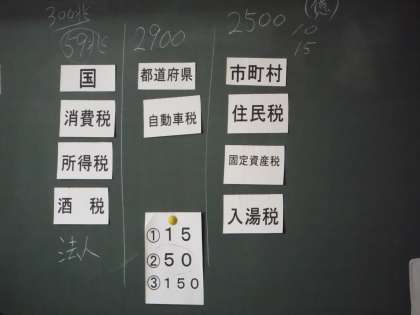 300兆
59兆
国
消費税
所得税
酒 税
法人
2900
都道府県
自動車税
①15
②50
③150
2500
(億)
10
15
市町村
住民税
固定資産税
入湯税